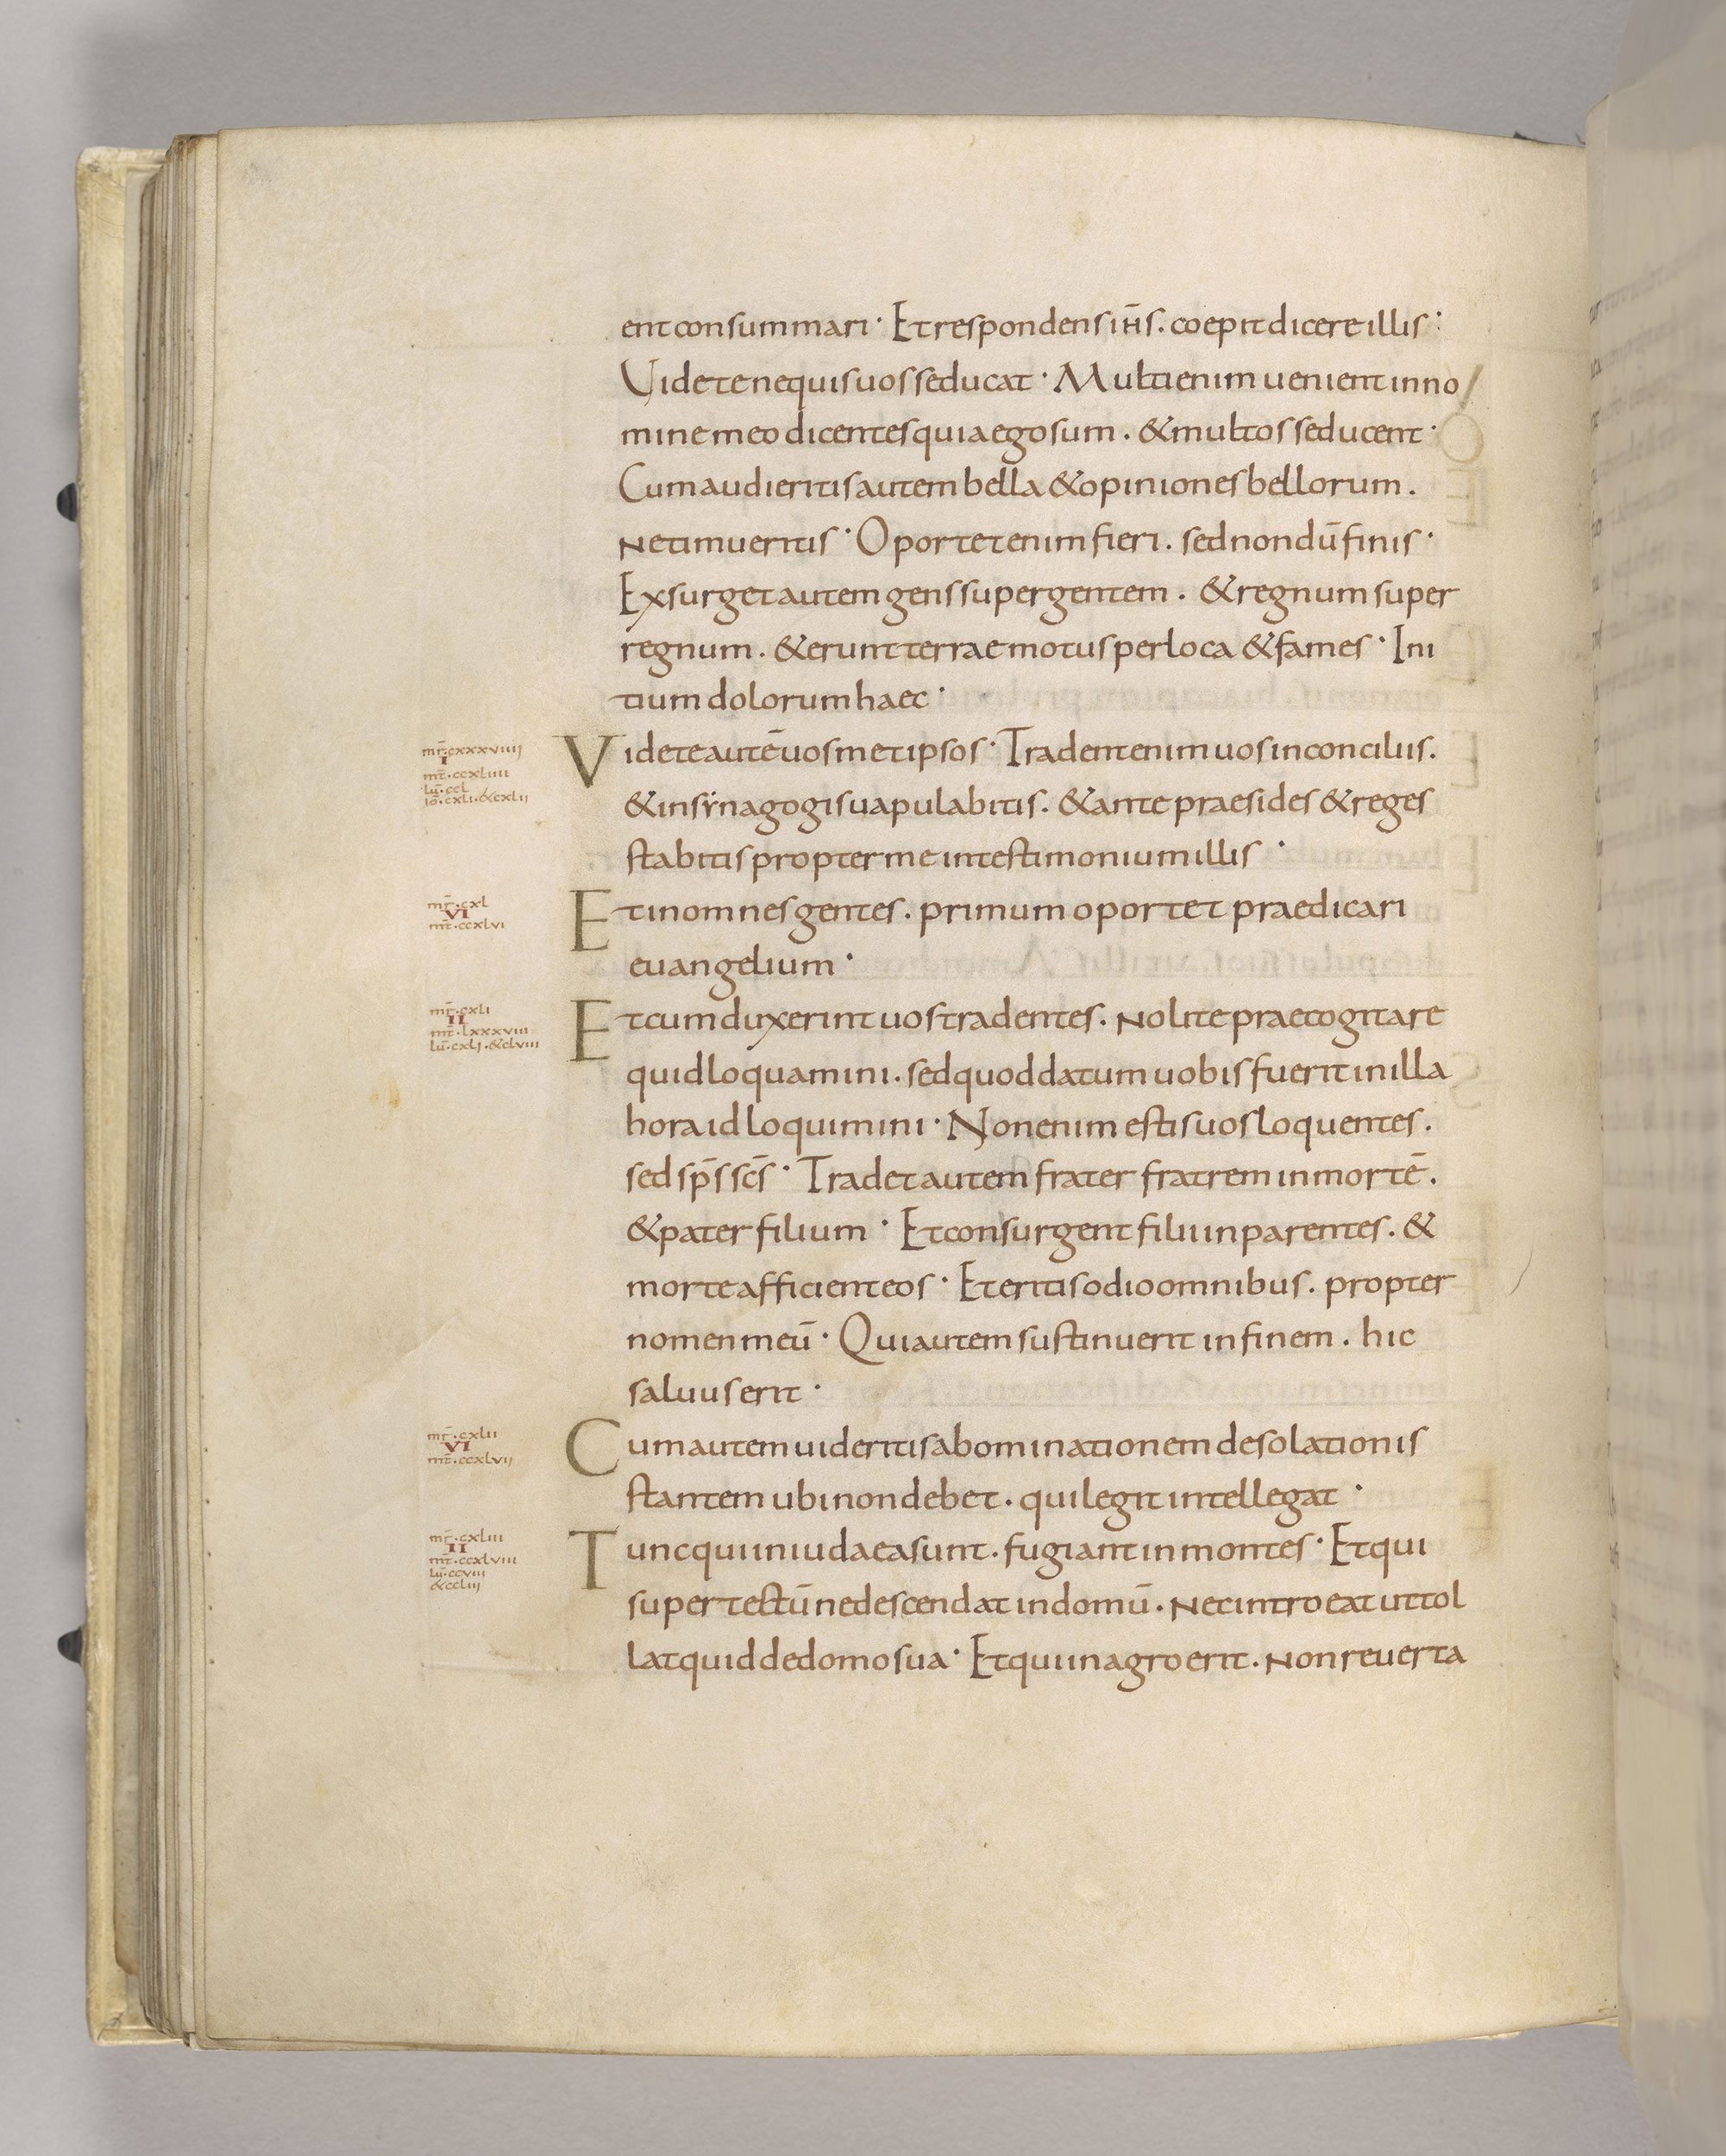 ent consummari · Et respondens ih̄s. coepit dicere illis :
Videte nequis uos seducat · Multi enim uenient in no
mine meo dicentes quia ego sum . & multos seducent ·
Cum audieritis autem bella & opiniones bellorum .
Ne timueritis · Oportet enim fieri . sed nondū finis ·
Exsurget autem gens super gentem . & regnum super
regnum . & erunt terrae motus per loca & fames · Ini
tium dolorum haec ·
mr̄·cxxxviiii
I
mt̄·ccxliiii
lū·ccl
io·cxli·&cxlii
Videte autē uosmetipsos · Tradent enim uos in conciliis .
& in synagogis uapulabitis . & ante praesides & reges
stabitis propter me in testimonium illis ·
mr̄·cxl
VI
mt̄·ccxlvi
Et in omnes gentes . primum oportet praedicari
euangelium ·
mr̄·cxli
II
mt̄·lxxxviii
lū·cxlj·&clviii
Et cum duxerint uos tradentes . Nolite praecogitare
quid loquamini . sed quod datum uobis fuerit in illa
hora id loquimini · Non enim estis uos loquentes .
sed sp̄s sc̄s · Tradet autem frater fratrem in mortē .
& pater filium · Et consurgent filii in parentes . &
morte afficient eos · Et eritis odio omnibus . propter
nomen meū · Qui autem sustinuerit in finem . hic
saluus erit ·
mr̄·cxlii
VI
mt̄·ccxlvij
Cum autem uideritis abominationem desolationis
stantem ubi non debet . qui legit intellegat ·
mr̄·cxliii
II
mt̄·ccxlviii
lū·ccviii
&ccliij
Tunc qui in iudaea sunt . fugiant in montes · Et qui
super tectū ne descendat in domū . Nec introeat ut tol
lat quid de domo sua · Et qui in agro erit . non reuerta